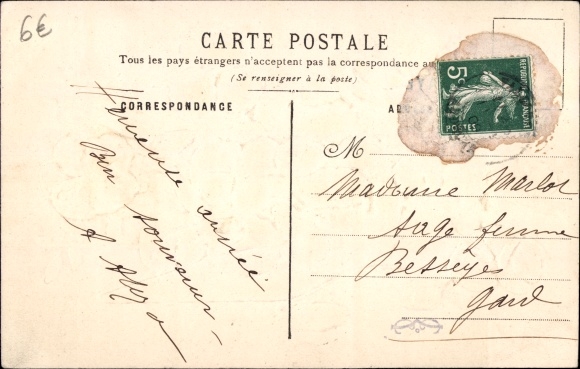 6€
CARTE POSTALE
Tous les pays étrangers n'acceptent pas la correspondance au
(Se renseigner à la poste)
CORRESPONDANCE
AD
5c
POSTES
Heureuse année
Bon souvenir
M
Madame Marlot
Sage femme
Bessèges
Gard